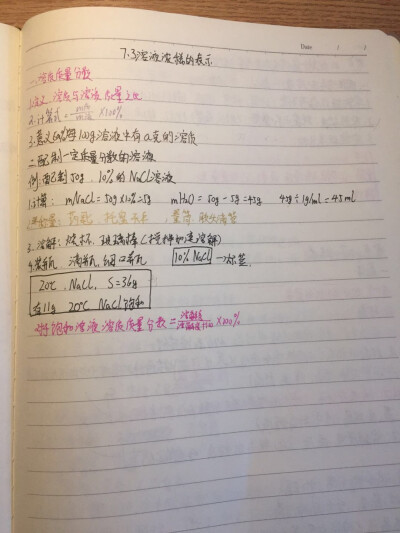 Date
7.3溶液浓稀的表示
一.溶质质量分数
1.定义:溶质与溶液质量之比
2.计算式= ×100%
3.意义:a%每100g溶液中有a克的溶质
二.配制一定质量分数的溶液
例:配制50g,10%的NaCl溶液
1.计算: mNaCl=50g×10%=5g mH2O=50g-5g=45g 45g÷1g/ml=45ml
托盘天平 量筒 胶头滴管
3.溶解:烧杯.玻璃棒(搅拌加速溶解)
4.装瓶 细口瓶 10% NaCl →标签
20℃,NaCl,S=36g
20℃ NaCl饱和
饱和溶液溶质质量分数=溶解度/溶解度+100×100%